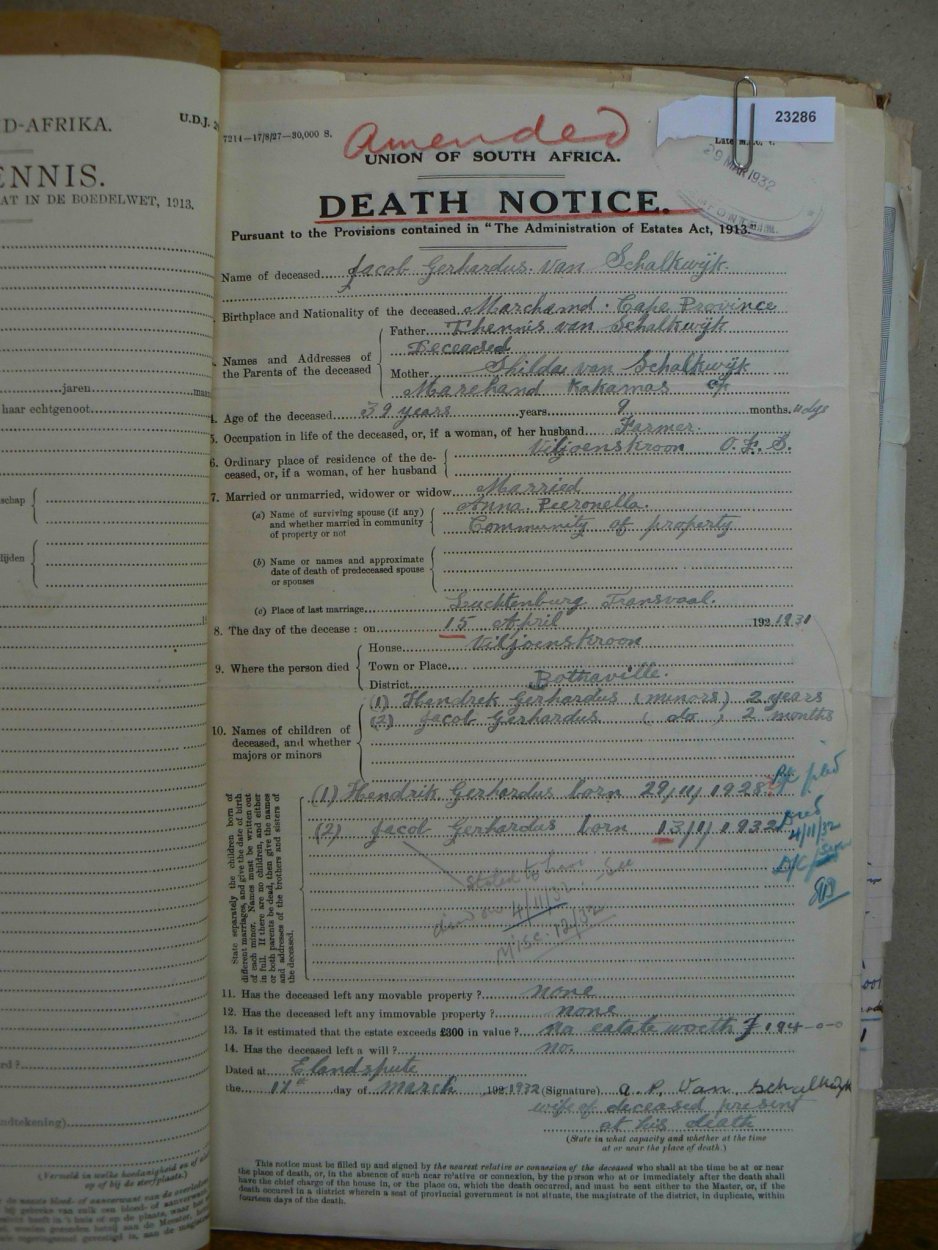 D-AFRIKA.
U.D.J.
ENNIS.
AT IN DE BOEDELWET, 1913.
jaren
haar echtgenoot
schap
lijden
7214—17/8/27—30,000 S.
Amended
23286
29 MAR 1932
UNION OF SOUTH AFRICA.
DEATH NOTICE.
Pursuant to the Provisions contained in "The Administration of Estates Act, 1913."
Name of deceased Jacob Gerhardus Van Schalkwijk
Birthplace and Nationality of the deceased Marchand. Cape Province
Names and Addresses of the Parents of the deceased
Father Thennis van Schalkwijk
Deceased
Mother Shilda van Schalkwijk
Marchand Kakamas
4. Age of the deceased 39 years years 9 months. 11 dys
5. Occupation in life of the deceased, or, if a woman, of her husband Farmer.
6. Ordinary place of residence of the deceased, or, if a woman, of her husband
Viljoenskroon O.F.S.
7. Married or unmarried, widower or widow Married
(a) Name of surviving spouse (if any) and whether married in community of property or not
Anna Peeronella.
Community of property
(b) Name or names and approximate date of death of predeceased spouse or spouses
(c) Place of last marriage Luchtenburg Transvaal.
8. The day of the decease : on 15 April 192 1931
9. Where the person died
House Viljoenskroon
Town or Place
District Bothaville.
10. Names of children of deceased, and whether majors or minors
(1) Hendrek Gerhardus (minors) 2 years
(2) Jacob Gerhardus ( do ) 2 months
State separately the children born of different marriages, and give the date of birth of each minor. Names must be written out in full. If there are no children, and either or both parents be dead, then give the names and addresses of the brothers and sisters of the deceased.
(1) Hendrik Gerhardus born 29/11/1928
(2) Jacob Gerhardus born 13/1/1932
Died
4/11/32
Stated to have
died on 4/11/32. See
Misc. 12/32
11. Has the deceased left any movable property ? none
12. Has the deceased left any immovable property ? none
13. Is it estimated that the estate exceeds £300 in value ? no estate worth £ 194-0-0
14. Has the deceased left a will ? no.
Dated at Elandspute
the 12th day of March 192 1932 (Signature) A. P. Van Schalkwyk
wife of deceased present
at his death
(State in what capacity and whether at the time
at or near the place of death.)
This notice must be filled up and signed by the nearest relative or connexion of the deceased who shall at the time be at or near
the place of death, or, in the absence of such near relative or connexion, by the person who at or immediately after the death shall
have the chief charge of the house in, or the place on, which the death occurred, and must be sent either to the Master, or, if the
death occured in a district wherein a seat of provincial government is not situate, the magistrate of the district, in duplicate, within
fourteen days of the death.